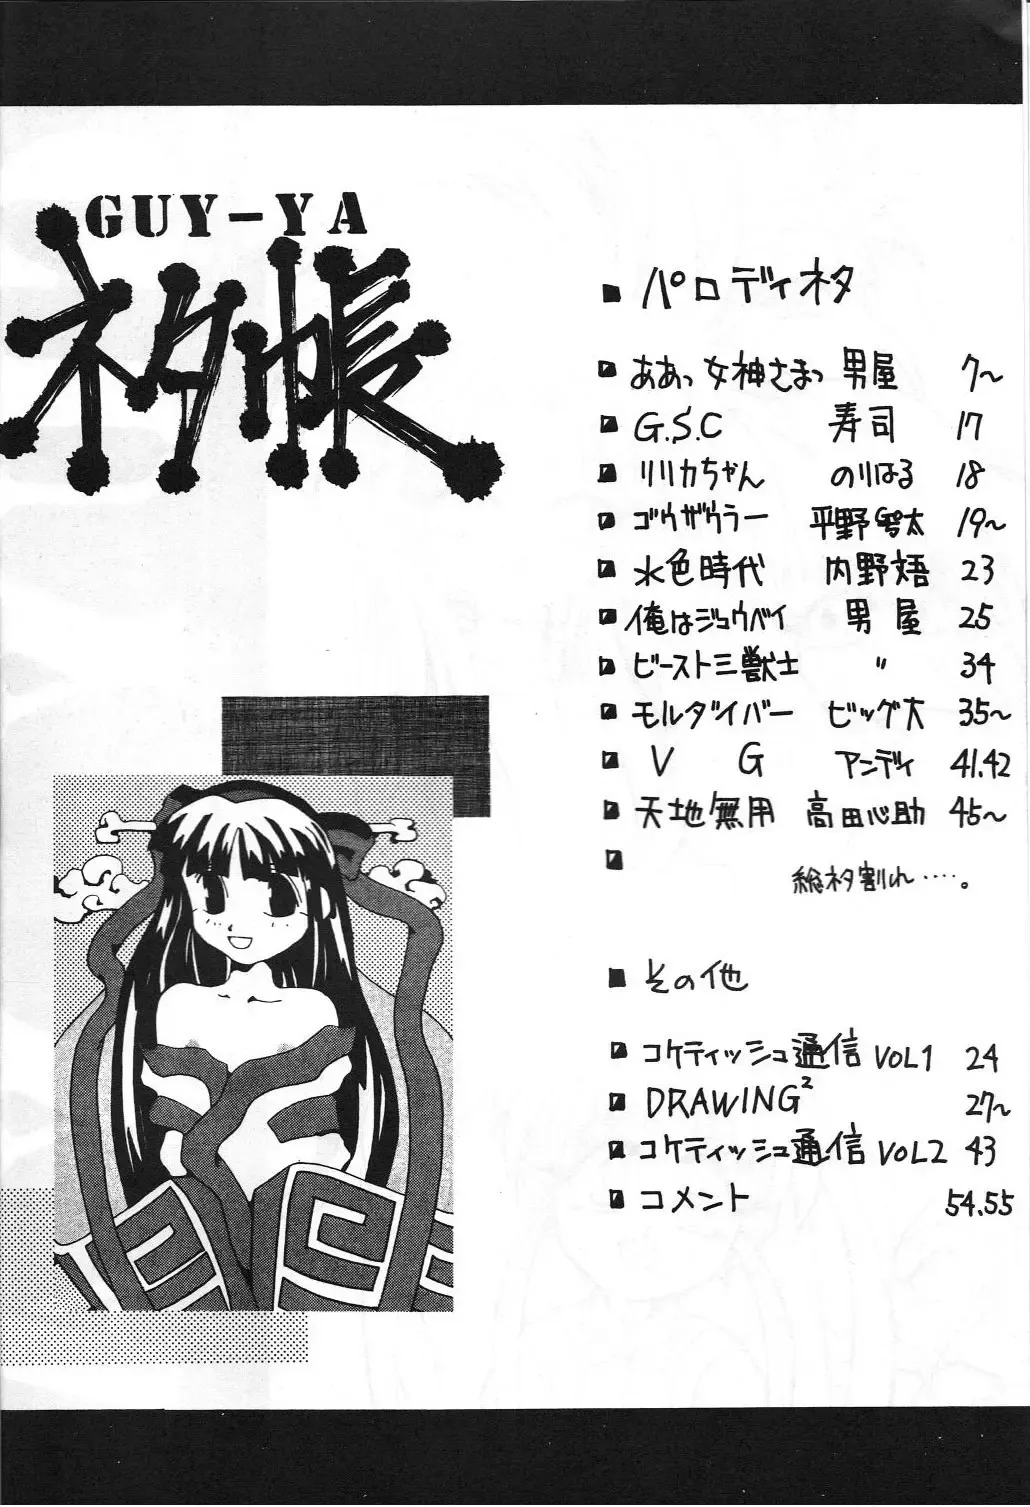 GUY-YA
ネタ帳
パロディネタ
ああっ女神さまっ 男屋 7〜
G.S.C 寿司 17
リリカちゃん のりはる 18
ゴウザウラー 平野 太 19〜
水色時代 内野 23
俺はジョウベイ 男屋 25
ビースト三獣士 〃 34
モルダイバー ビッグ大 35〜
V G アンディ 41.42
天地無用 高田心助 45〜
総ネタ割れ‥‥。
その他
コケティッシュ通信 VOL1 24
DRAWING² 27〜
コケティッシュ通信 VOL2 43
コメント 54.55